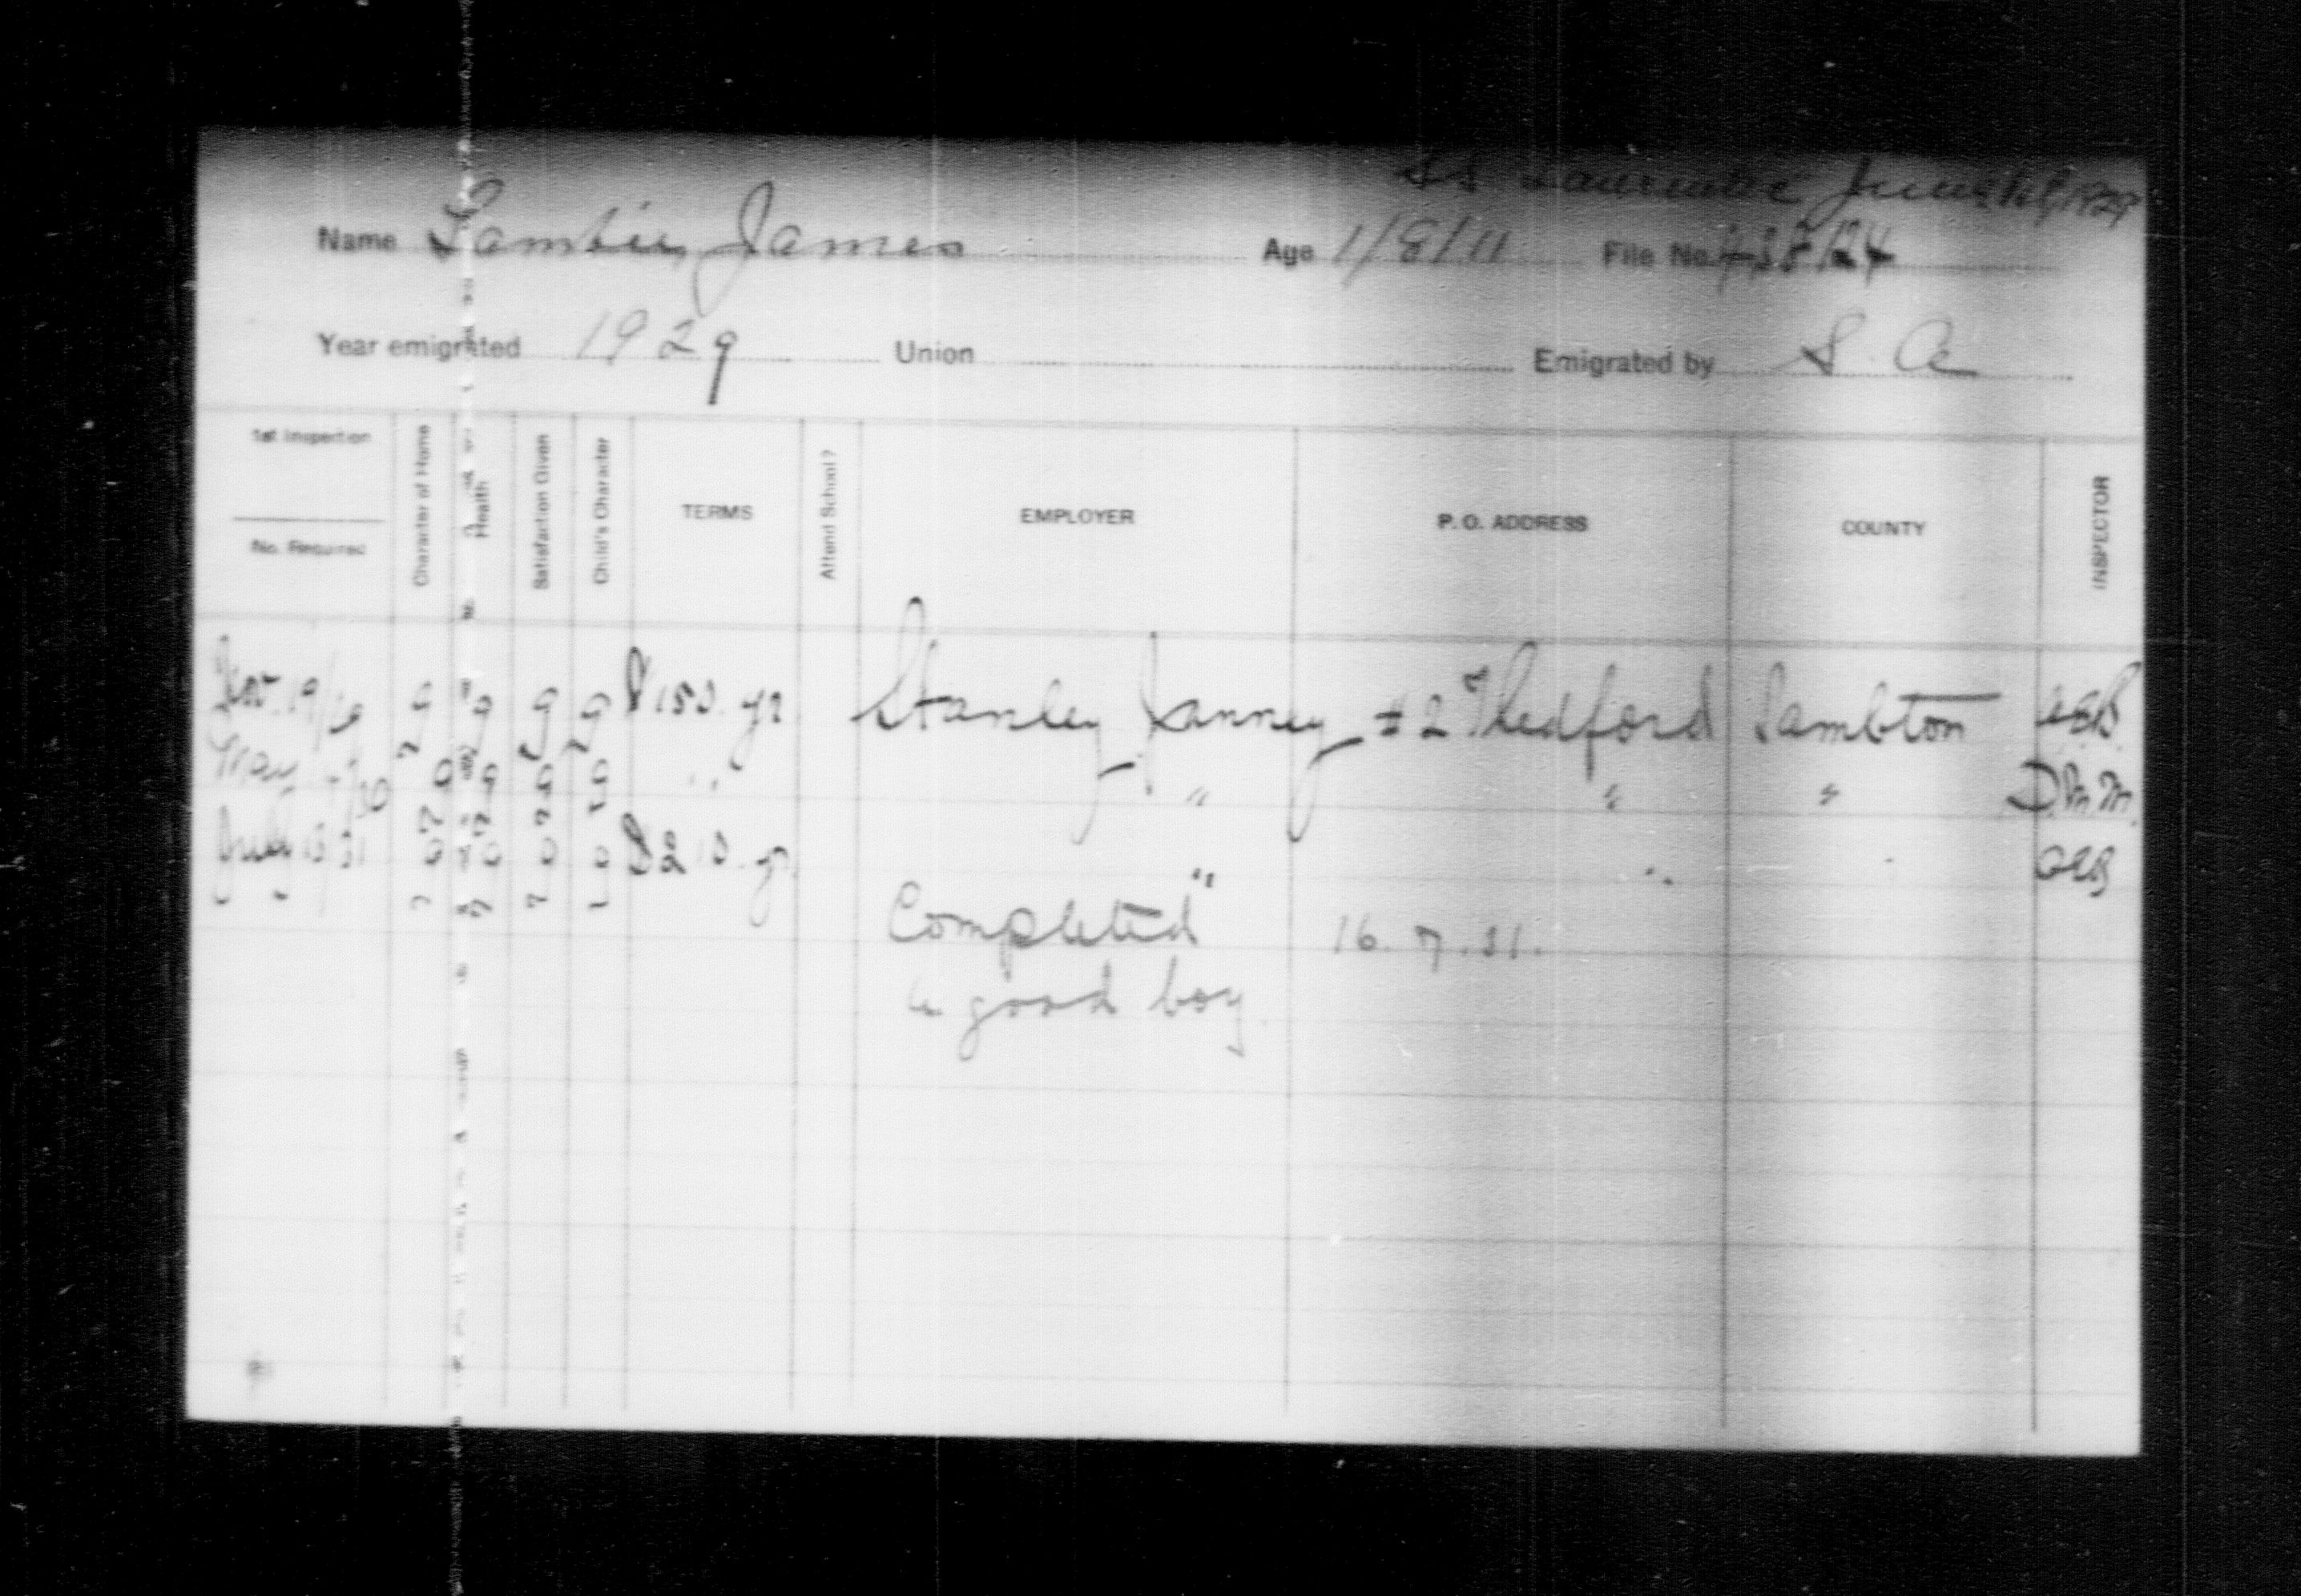 SS Laurentic June 1929
Name Lambie, James Age 1/8/11 File No.
Year emigrated 1929 Union Emigrated by S. A.
1st Inspection
No. Required
Character of Home
Health
Satisfaction Given
Child's Character
TERMS
Attend School?
EMPLOYER
P. O. ADDRESS
COUNTY
INSPECTOR
Nov. 19/29 g g g g $150. yr Stanley Janney #2 Thedford Lambton
May g g g g " " " " D.M.M.
July 13/31 g g g g $210. yr " "
Completed 16.7.31.
a good boy